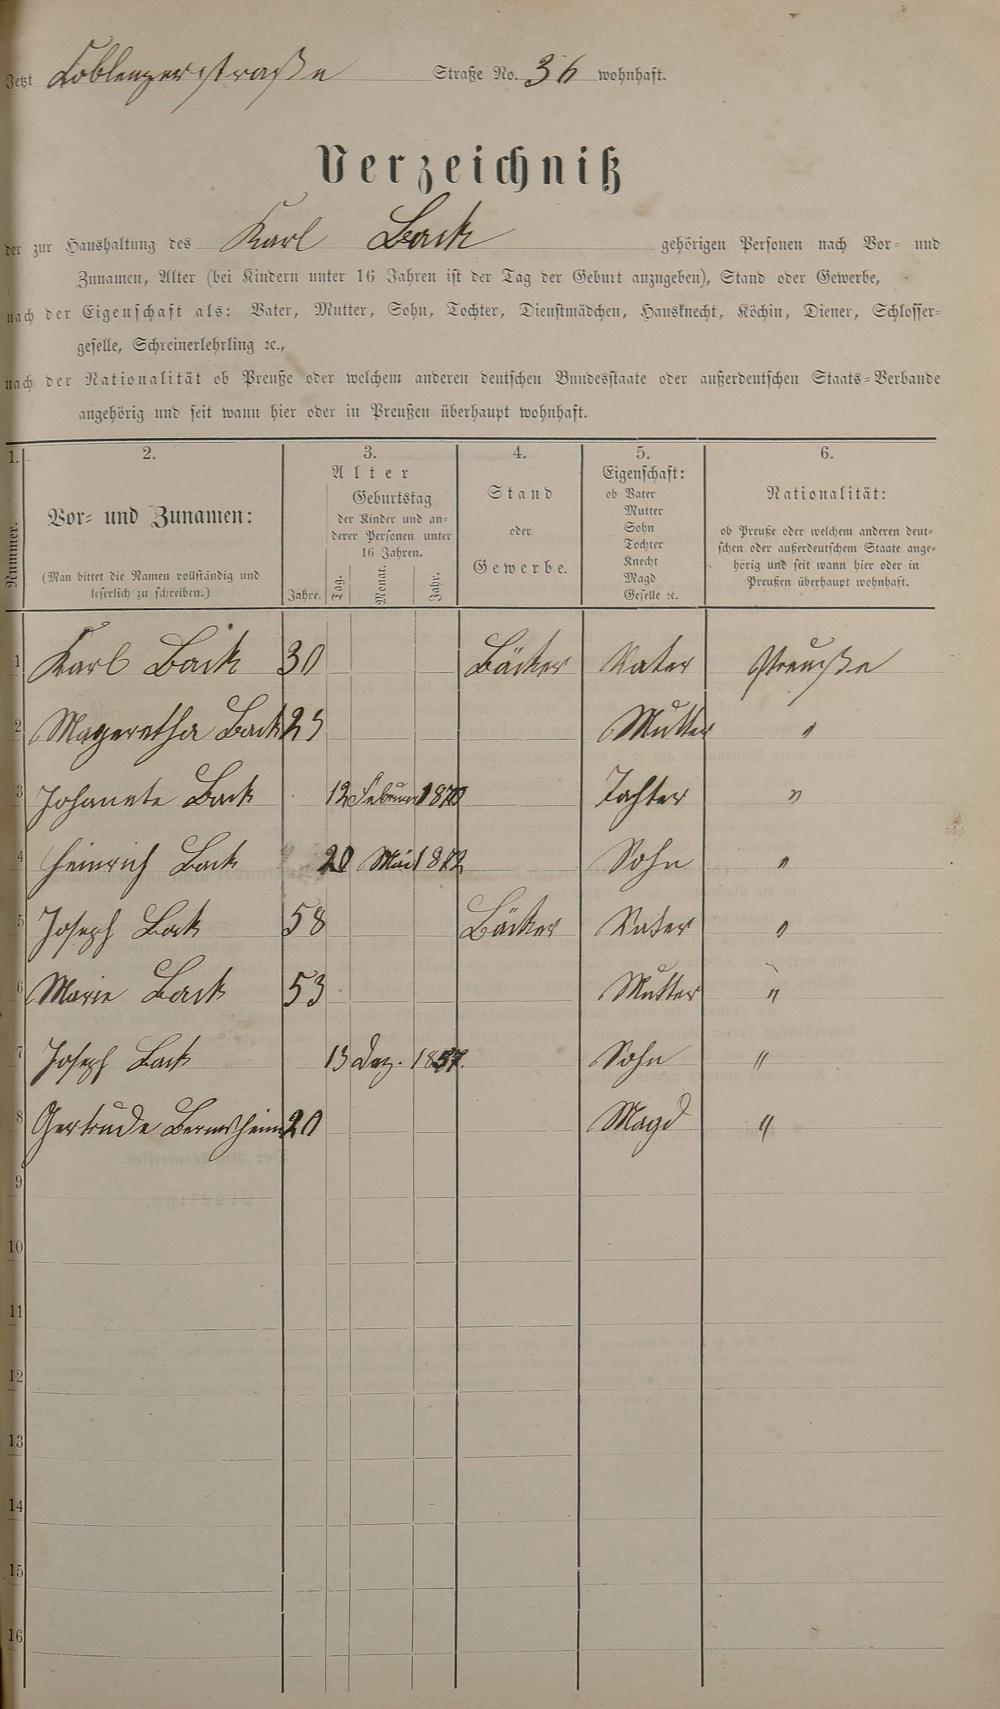 Jetzt Koblenzerstraße Straße No. 36 wohnhaft.
Verzeichniß
der zur Haushaltung des Karl Back gehörigen Personen nach Vor- und
Zunamen, Alter (bei Kindern unter 16 Jahren ist der Tag der Geburt anzugeben), Stand oder Gewerbe,
nach der Eigenschaft als: Vater, Mutter, Sohn, Tochter, Dienstmädchen, Hausknecht, Köchin, Diener, Schlosser-
geselle, Schreinerlehrling ꝛc.,
nach der Nationalität ob Preuße oder welchem anderen deutschen Bundesstaate oder außerdeutschen Staats-Verbande
angehörig und seit wann hier oder in Preußen überhaupt wohnhaft.
1.
Nummer.
2.
Vor- und Zunamen:
(Man bittet die Namen vollständig und
leserlich zu schreiben.)
3.
Alter
Geburtstag
der Kinder und an-
derer Personen unter
16 Jahren.
Jahre. Tag. Monat. Jahr.
4.
Stand
oder
Gewerbe.
5.
Eigenschaft:
ob Vater
Mutter
Sohn
Tochter
Knecht
Magd
Geselle ꝛc.
6.
Nationalität:
ob Preuße oder welchem anderen deut-
schen oder außerdeutschem Staate ange-
hörig und seit wann hier oder in
Preußen überhaupt wohnhaft.
1 Karl Back 30 Bäcker Vater Preuße
2 Mageretha Back 25 Mutter "
3 Johanete Back 12 Februar Tochter "
4 Heinrich Back 20 Mai 1872 Sohn "
5 Joseph Back 58 Bäcker Vater "
6 Marie Back 53 Mutter "
7 Joseph Back 13 Dez. 1857. Sohn "
8 Gertrude 20 Magd "
9
10
11
12
13
14
15
16